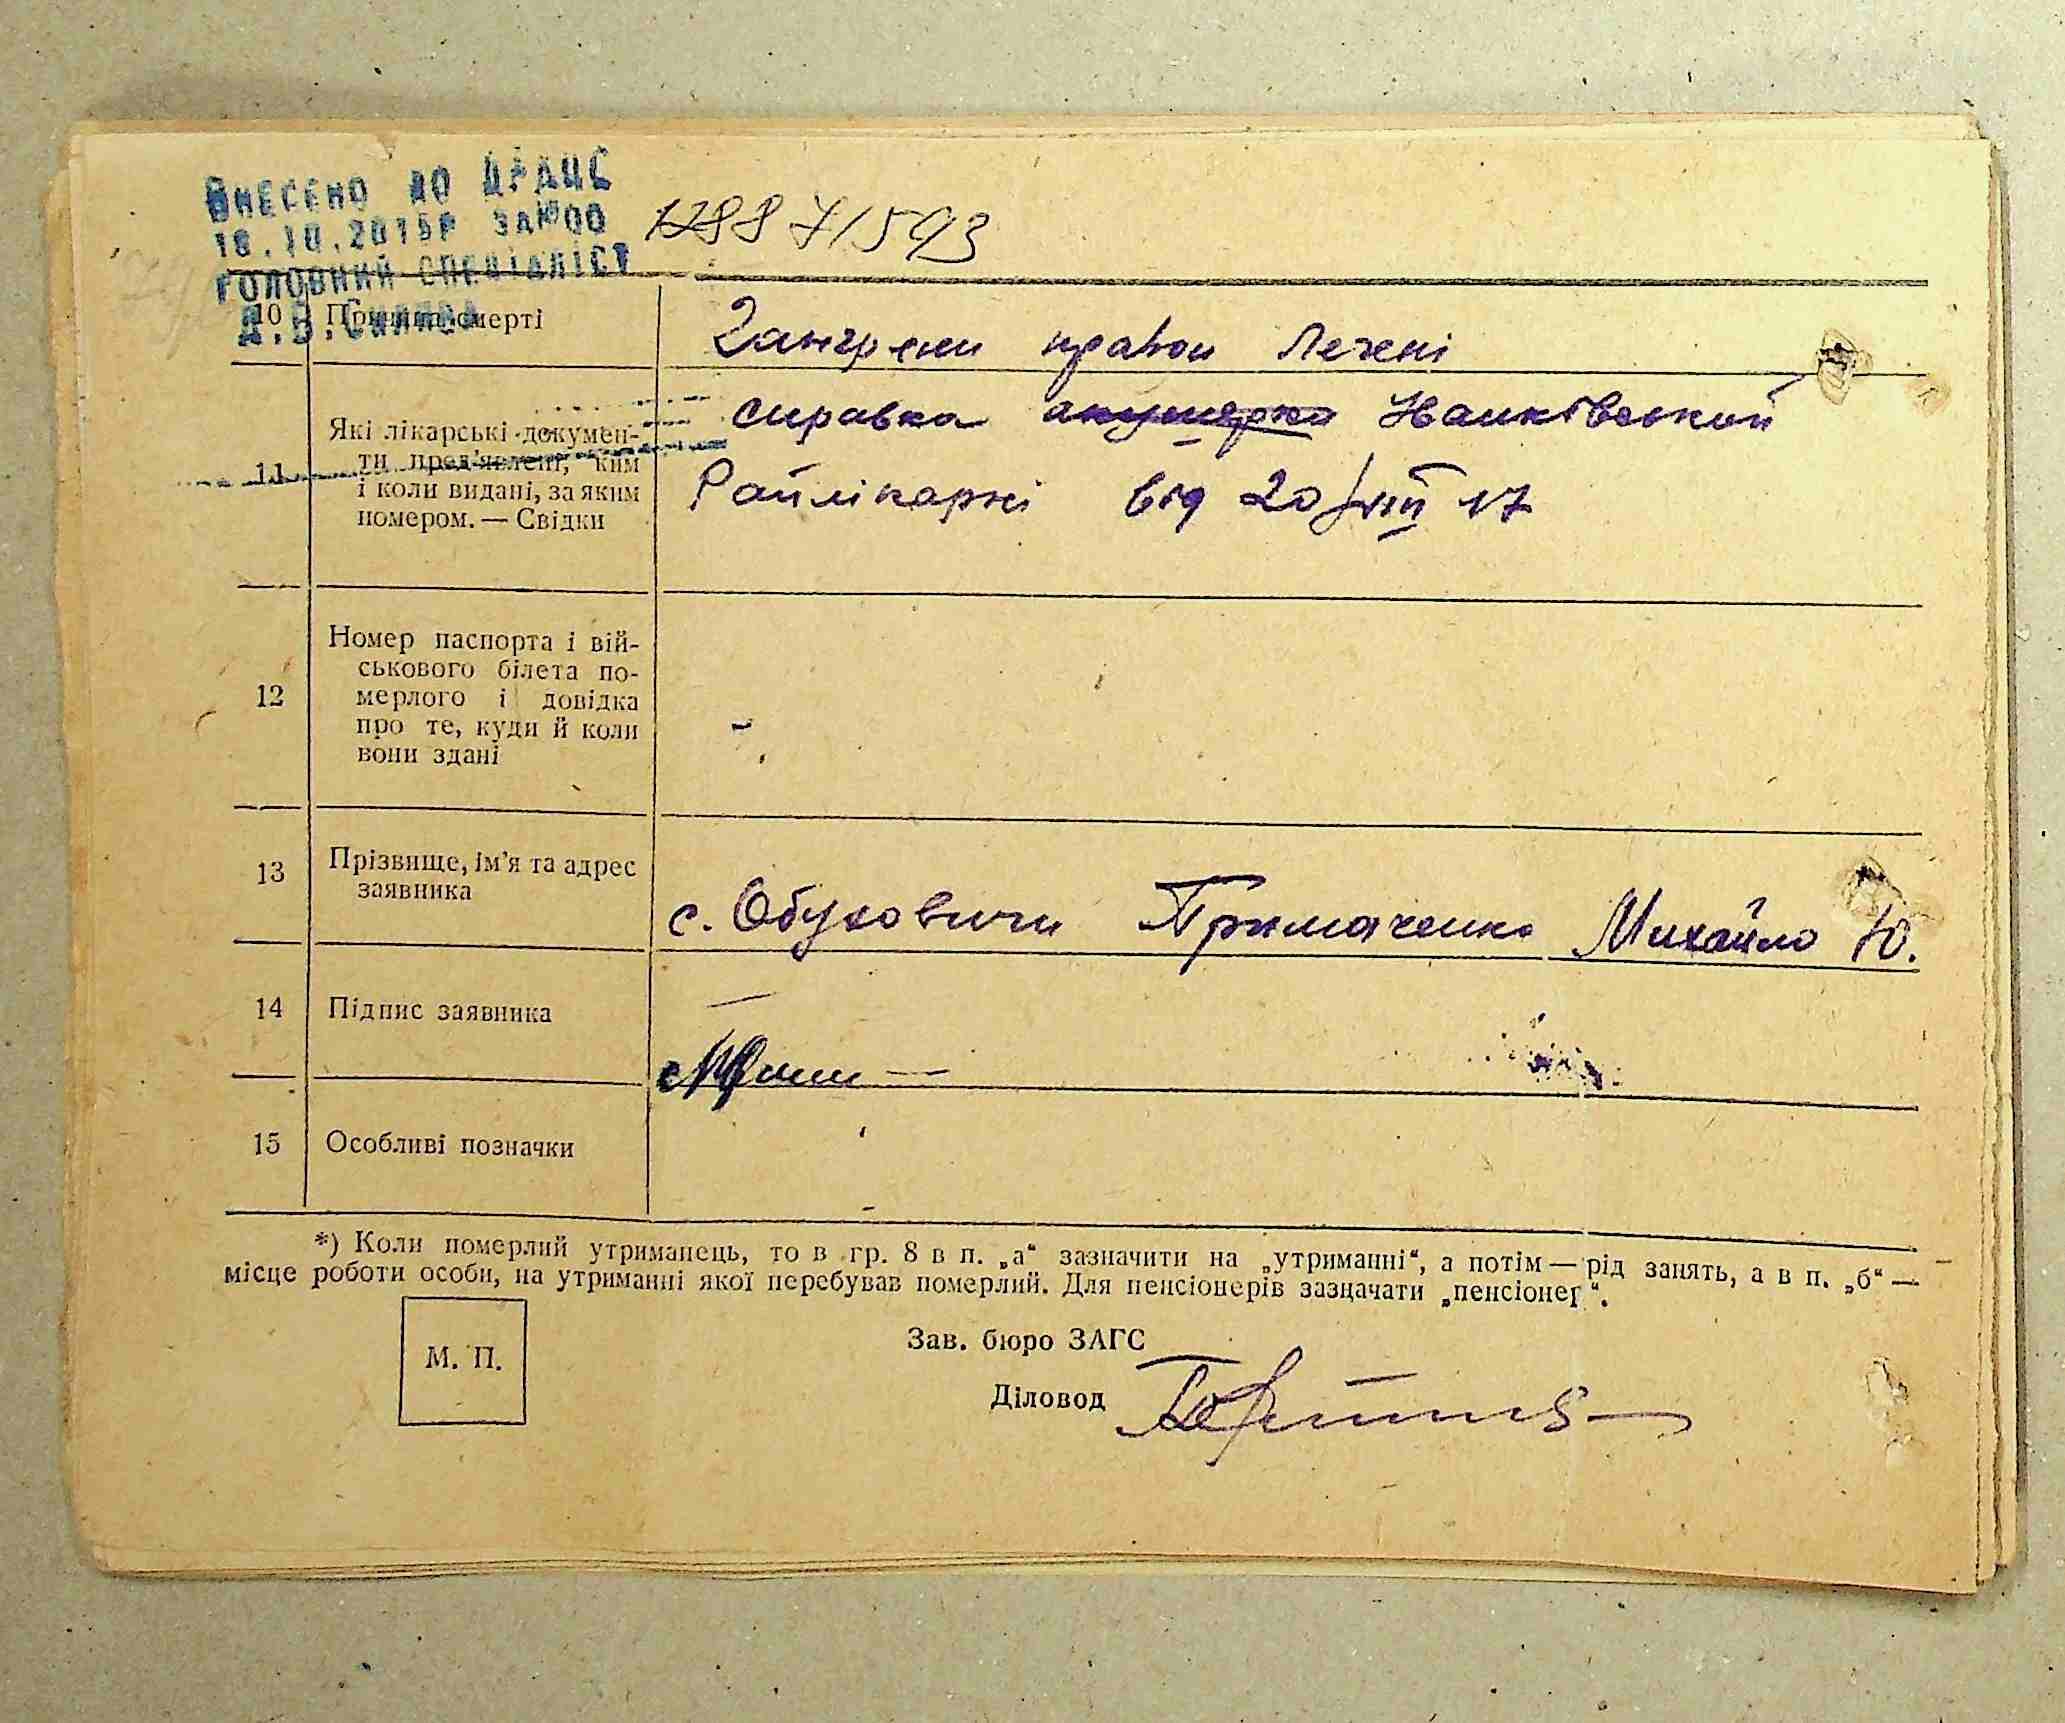 ВНЕСЕНО ДО ДРАЦС
16.10.2015Р ЗА№00
1288 71593
ГОЛОВНИЙ СПЕЦІАЛІСТ
10 Причина смерті
Гангрени правои Легені
11 Які лікарські докумен-
ти пред'явлені, ким
і коли видані, за яким
номером. — Свідки
справка акушерка Іванківської
Райлікарні від 20/VIII 47
12 Номер паспорта і вій-
ськового білета по-
мерлого і довідка
про те, куди й коли
вони здані
-
13 Прізвище, ім'я та адрес
заявника
с. Обуховичи Примаченко Михайло Ю.
14 Підпис заявника
15 Особливі позначки
*) Коли померлий утриманець, то в гр. 8 в п. „а“ зазначити на „утриманні“, а потім — рід занять, а в п. „б“ —
місце роботи особи, на утриманні якої перебував померлий. Для пенсіонерів зазначати „пенсіонер“.
М. П.
Зав. бюро ЗАГС
Діловод